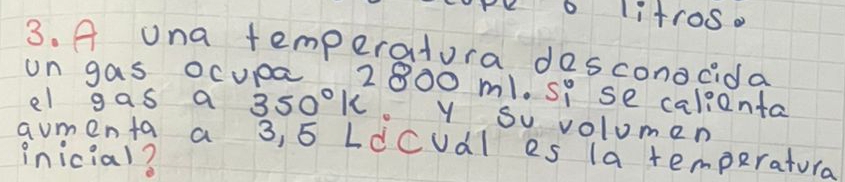 litros.
3. A una temperatura desconocida
un gas ocupa 2800 ml. si se calienta
el gas a 350°K. y su volumen
aumenta a 3,5 L ¿cual es la temperatura
inicial?